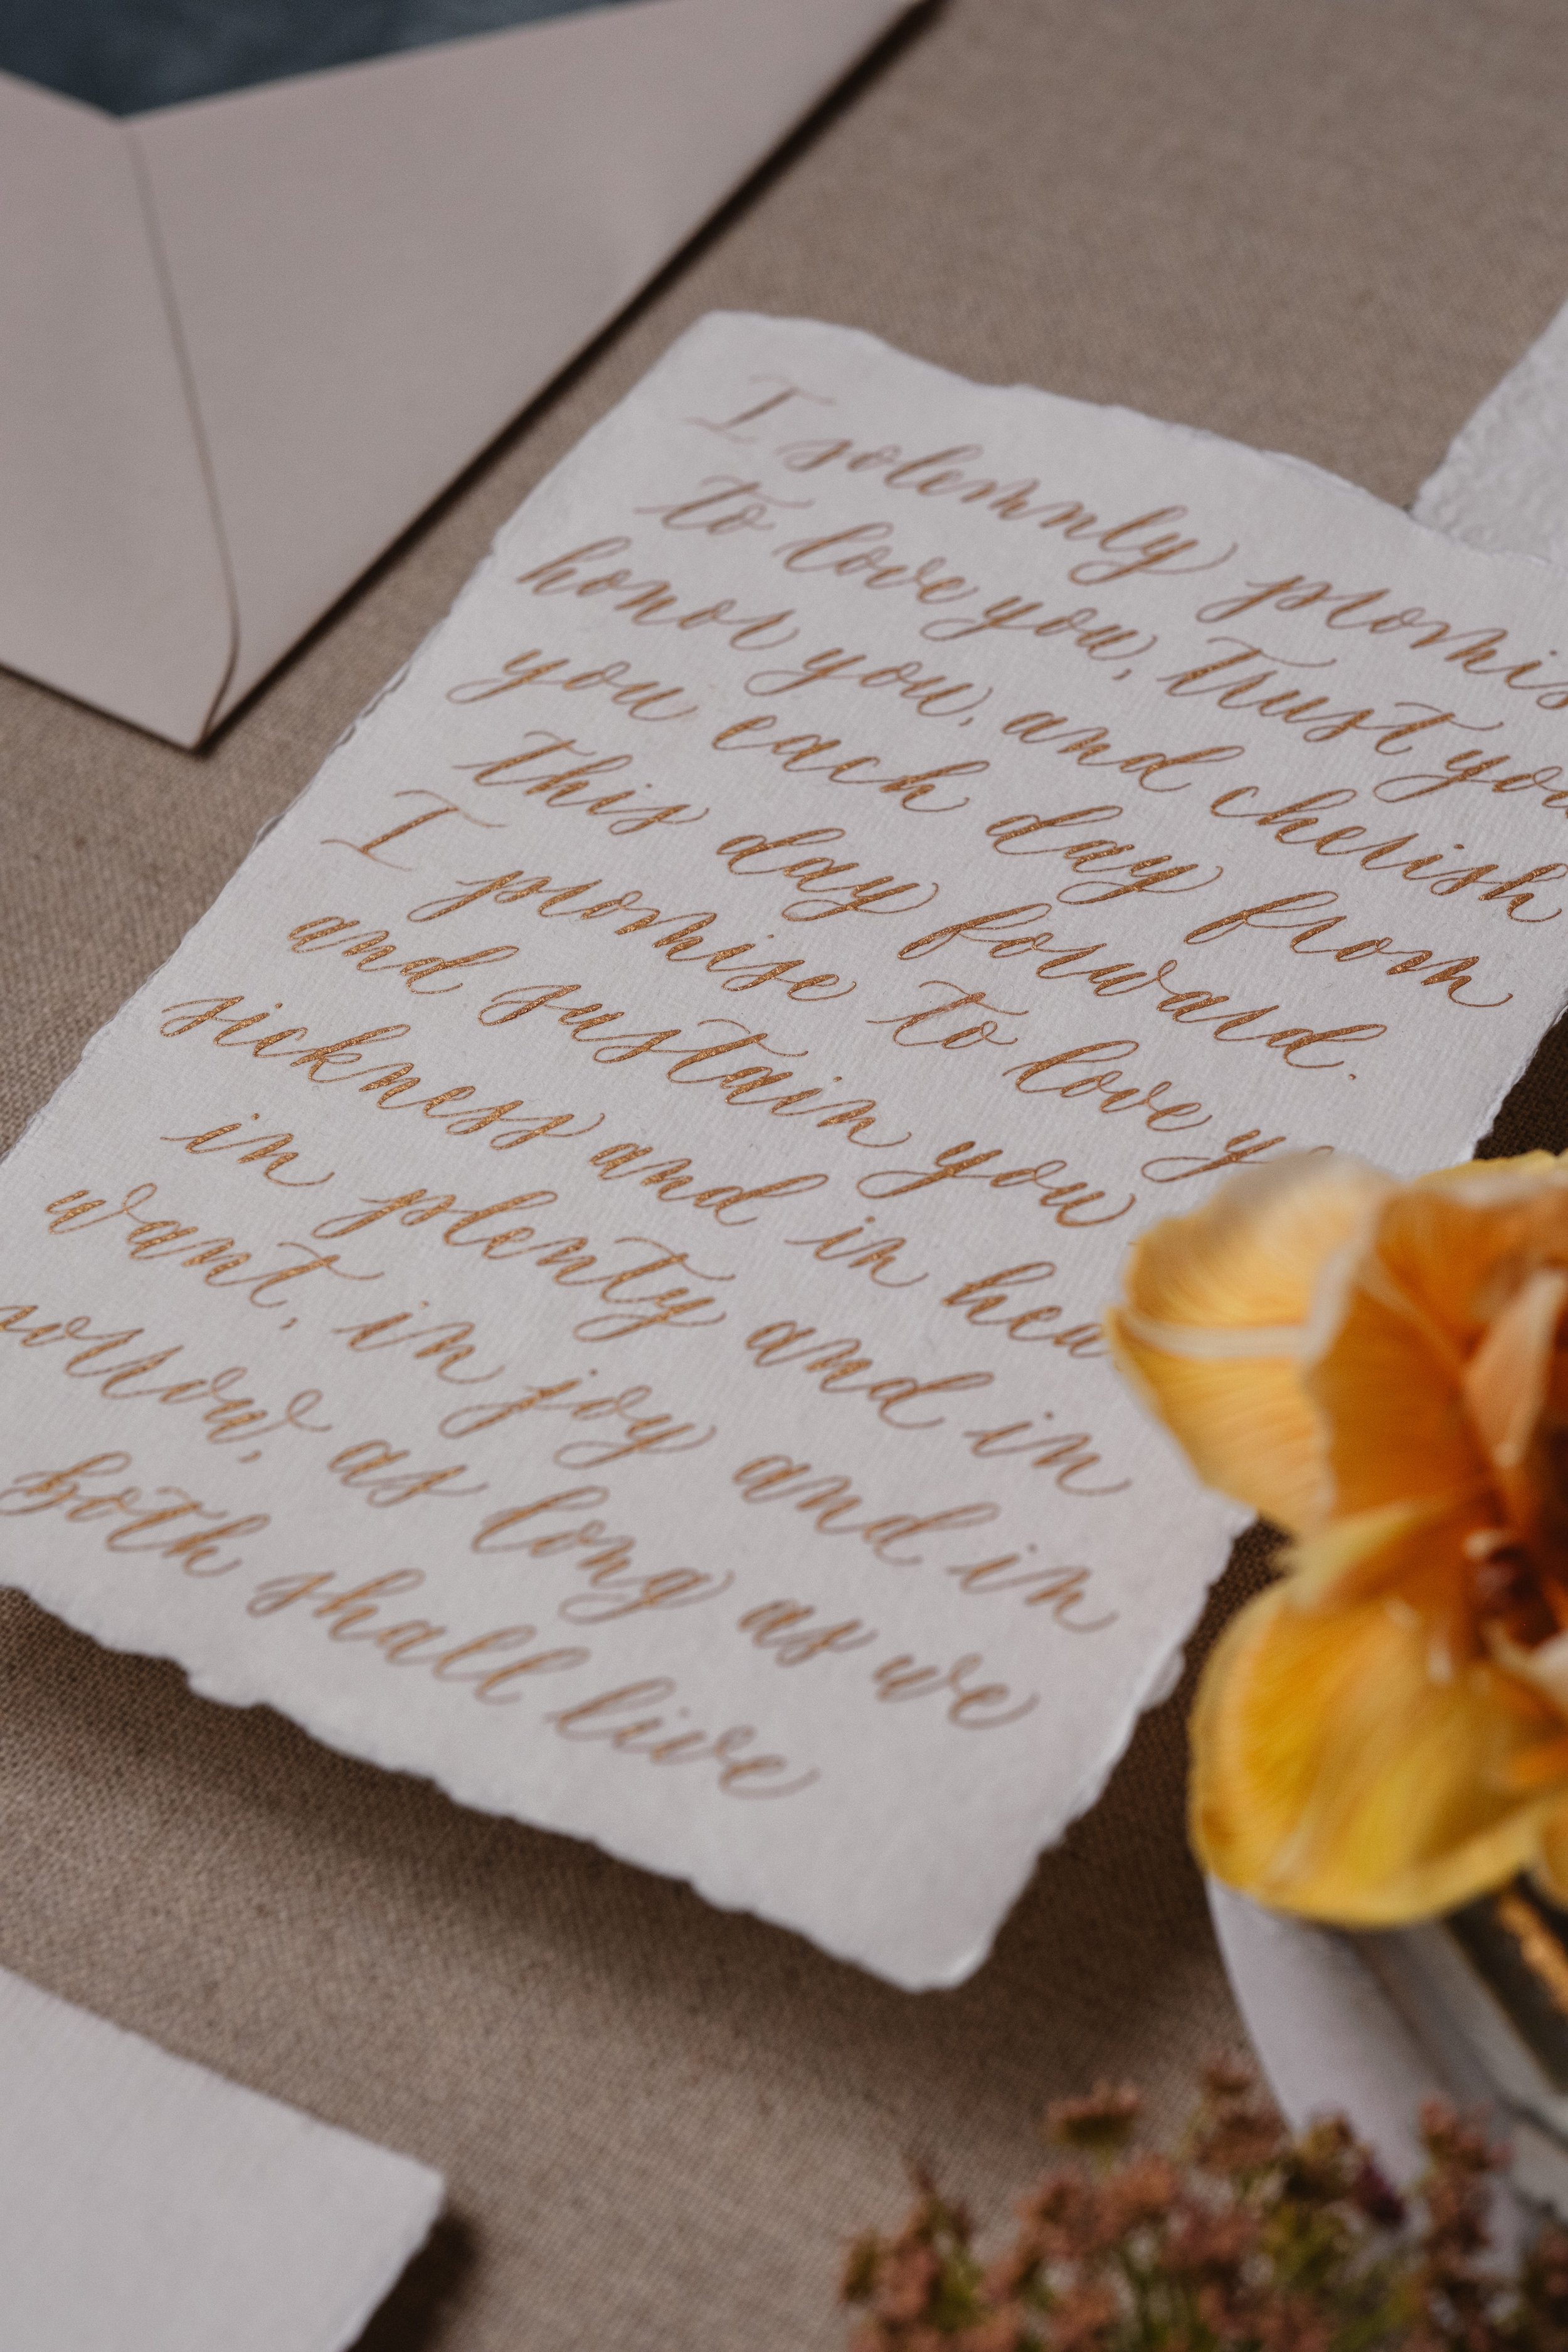 I solemnly promis
to love you, trust you
honor you, and cherish
you each day from
this day forward.
I promise to love y
and sustain you
sickness and in hea
in plenty and in
want, in joy and in
sorrow, as long as we
both shall live